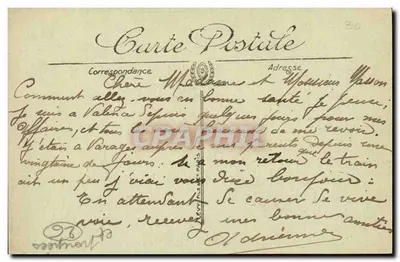 Carte Postale
Correspondance Adresse
Chère Madame et Monsieur Masson
Comment allez vous en bonne santé je pense;
je suis a Valence depuis quelques jours pour mes
affaires, et tous de me revoir.
j'étais a parents depuis une
vingtaine de jours: si a mon retour que le train
ait un peu j'irai vous dire bonjour:
En attendant se causer de vive
voie, recevez mes bonnes amitiés
Adrienne
CPAPHIL